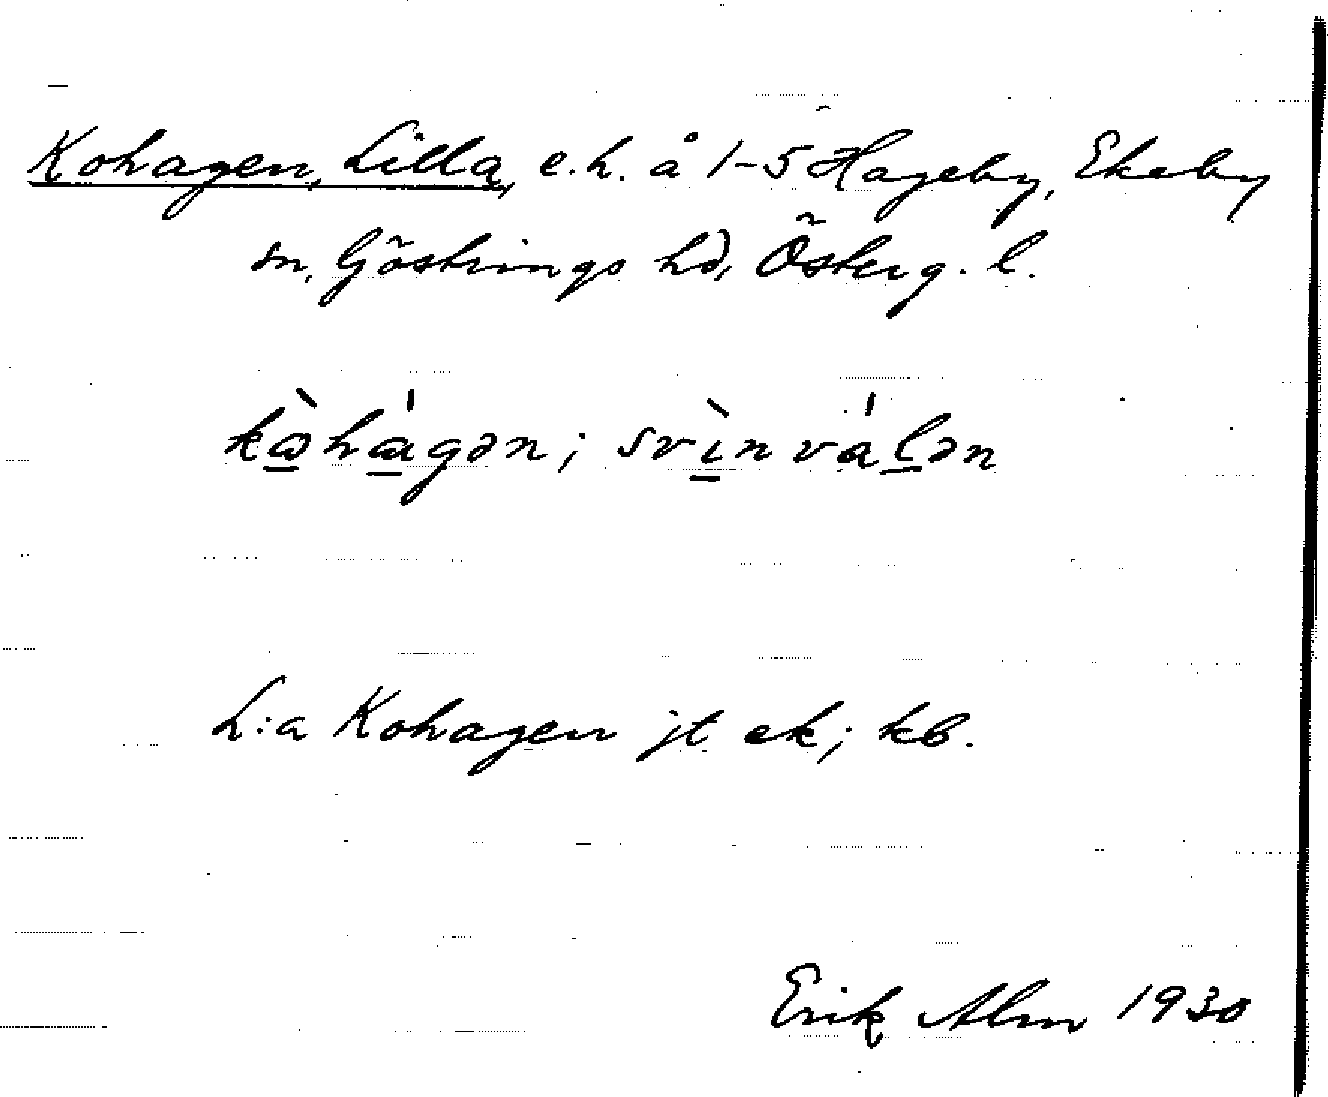 Kohagen, Lilla, e.h. å 1-5 Hageby, Ekeby
sn, Göstrings hd, Österg. l.
kὼhάgən; svìnválən
L:a Kohagen jt ek; kb.
Erik Alm 1930